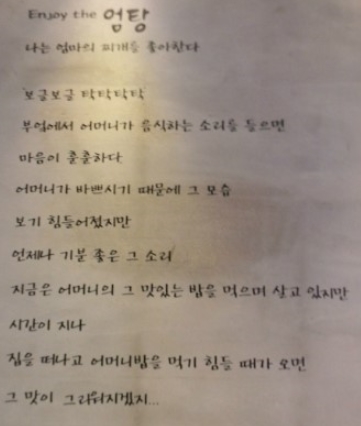 Enjoy the 엄탕
나는 엄마의 찌개를 좋아한다
보글보글 탁탁탁탁
부엌에서 어머니가 음식하는 소리를 들으면
마음이 출출하다
어머니가 바쁘시기 때문에 그 모습
보기 힘들어졌지만
언제나 기분 좋은 그 소리
지금은 어머니의 그 맛있는 밥을 먹으며 살고 있지만
시간이 지나
집을 떠나고 어머니밥을 먹기 힘들 때가 오면
그 맛이 그리워지겠지...